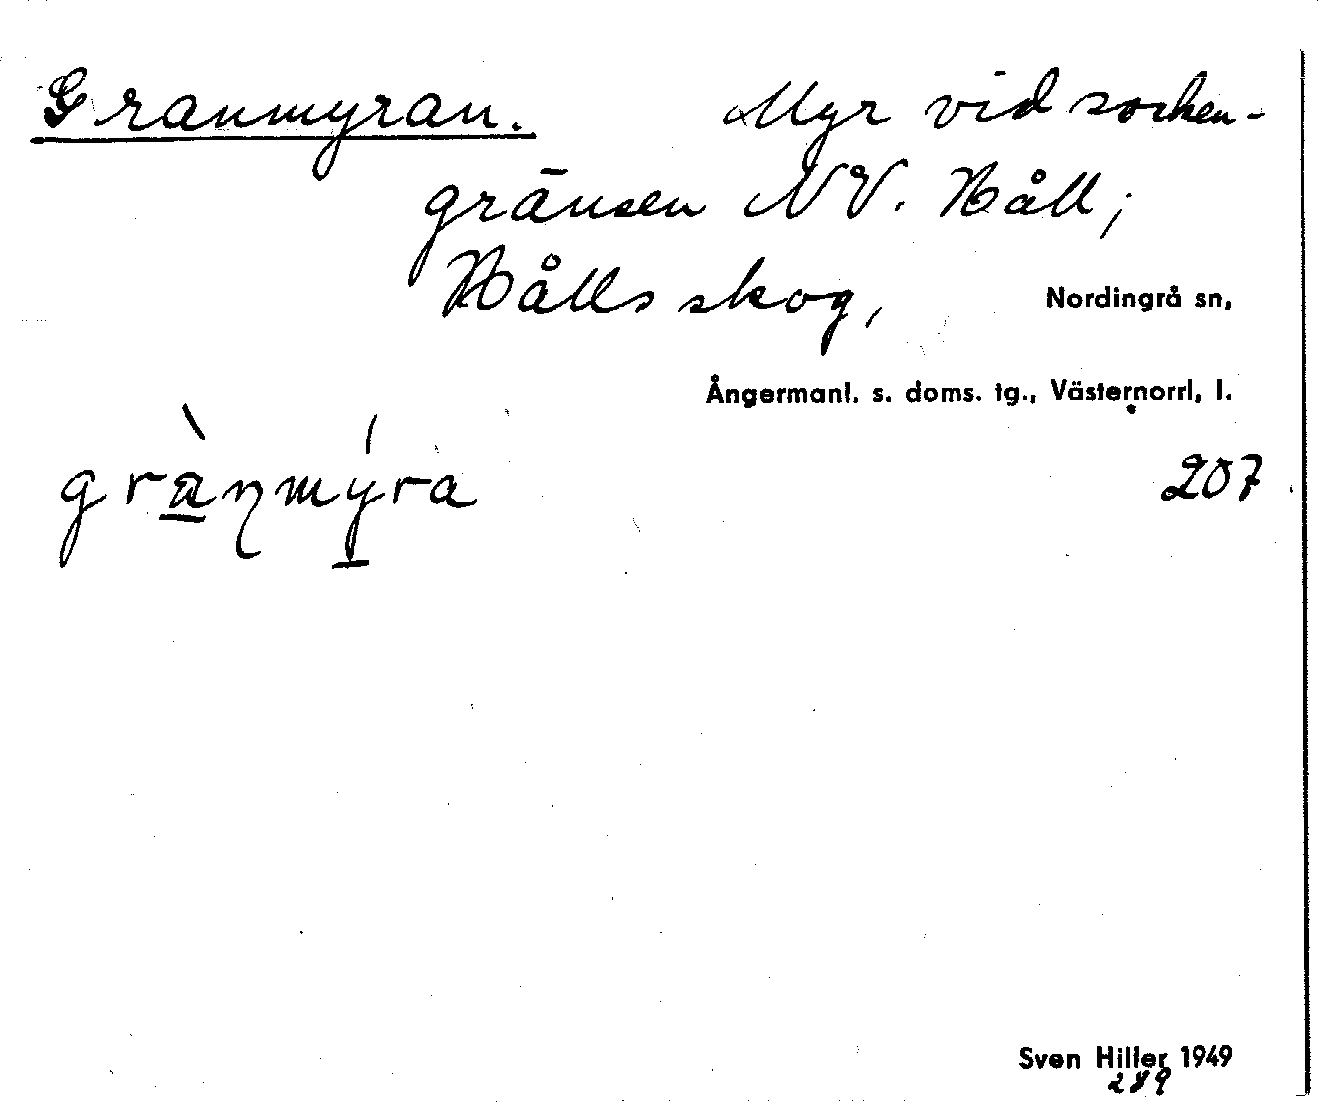 Granmyran. Myr vid socken-
gränsen NV. Håll;
Hålls skog, Nordingrå sn,
Ångermanl. s. doms. tg., Västernorrl, l.
grànmýra 207
Sven Hiller 1949
289